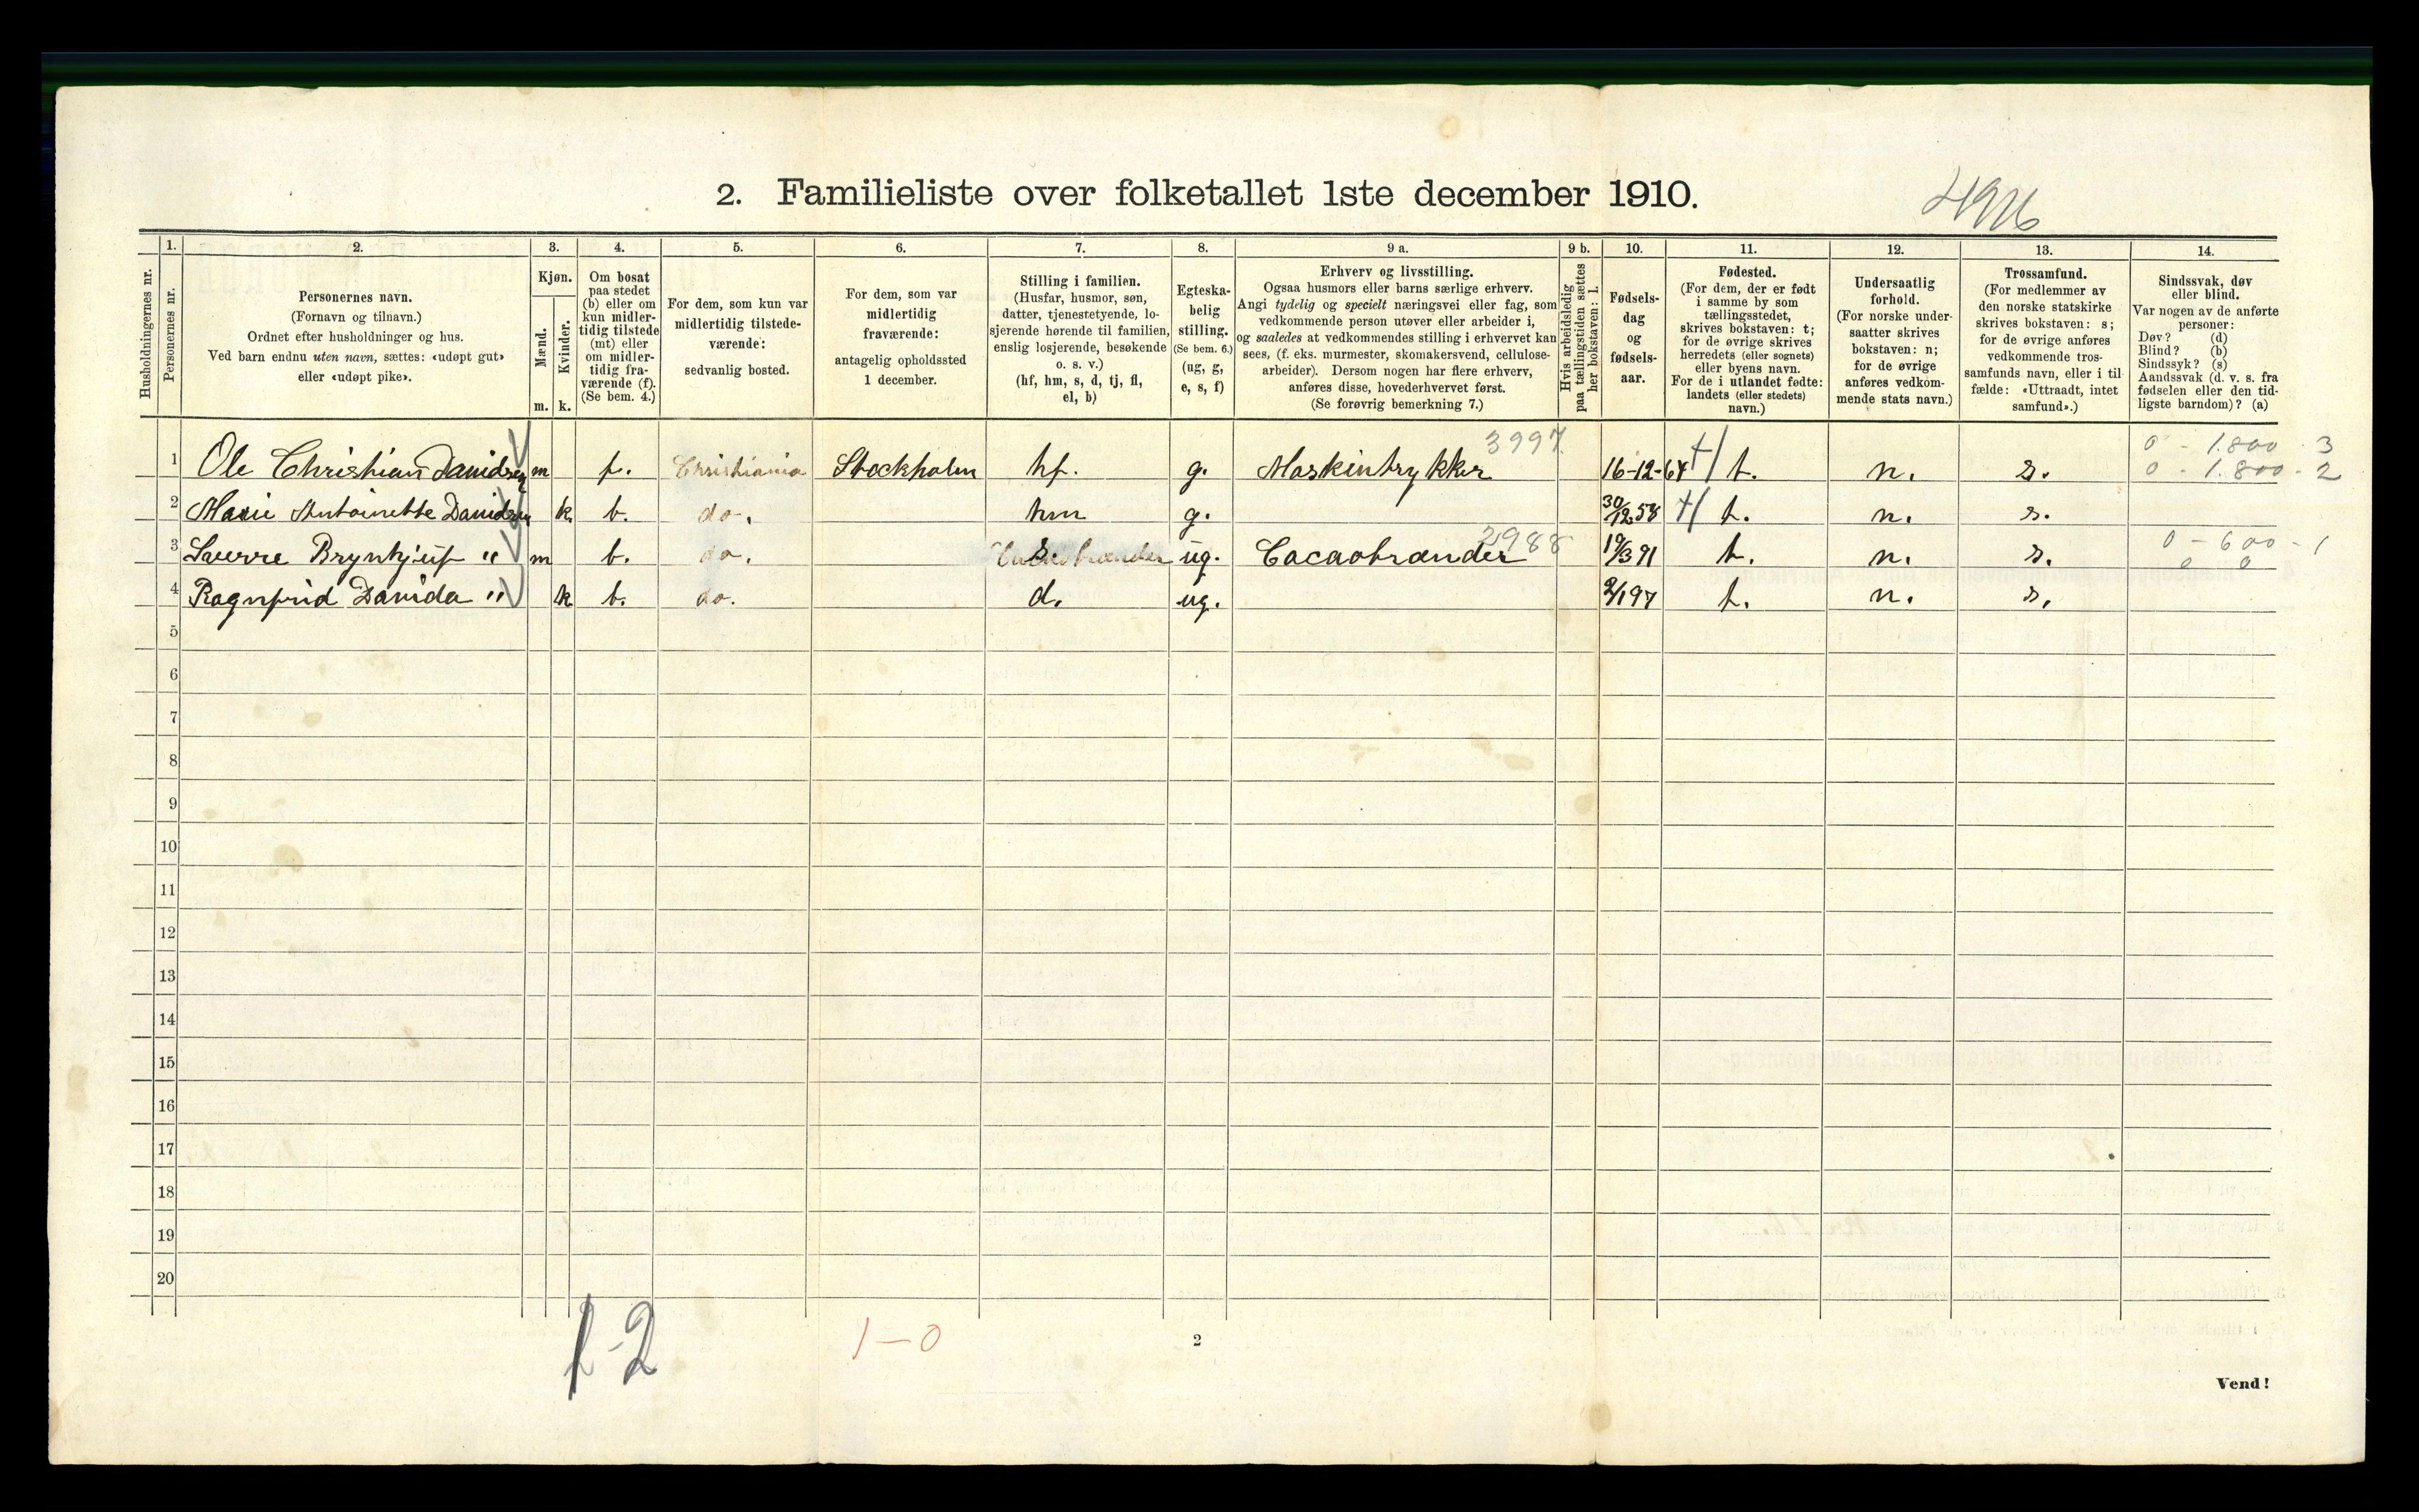 2. Familieliste over folketallet 1ste december 1910.
1. 2. 3. 4. 5. 6. 7. 8. 9 a. 9 b. 10. 11. 12. 13. 14.
Husholdningernes nr.
Personernes nr.
Personernes navn.
(Fornavn og tilnavn.)
Ordnet efter husholdninger og hus.
Ved barn endnu uten navn, sættes: «udøpt gut»
eller «udøpt pike».
Kjøn.
Mænd.
Kvinder.
m. k.
Om bosat
paa stedet
(b) eller om
kun midler-
tidig tilstede
(mt) eller
om midler-
tidig fra-
værende (f).
(Se bem. 4.)
For dem, som kun var
midlertidig tilstede-
værende:
sedvanlig bosted.
For dem, som var
midlertidig
fraværende:
antagelig opholdssted
1 december.
Stilling i familien.
(Husfar, husmor, søn,
datter, tjenestetyende, lo-
sjerende hørende til familien,
enslig losjerende, besøkende
o. s. v.)
(hf, hm, s, d, tj, fl,
el, b)
Egteska-
belig
stilling.
(Se bem. 6.)
(ug, g,
e, s, f)
Erhverv og livsstilling.
Ogsaa husmors eller barns særlige erhverv.
Angi tydelig og specielt næringsvei eller fag, som
vedkommende person utøver eller arbeider i,
og saaledes at vedkommendes stilling i erhvervet kan
sees, (f. eks. murmester, skomakersvend, cellulose-
arbeider). Dersom nogen har flere erhverv,
anføres disse, hovederhvervet først.
(Se forøvrig bemerkning 7.)
Hvis arbeidsledig
paa tællingstiden sættes
her bokstaven: l.
Fødsels-
dag
og
fødsels-
aar.
Fødested.
(For dem, der er født
i samme by som
tællingsstedet,
skrives bokstaven: t;
for de øvrige skrives
herredets (eller sognets)
eller byens navn.
For de i utlandet fødte:
landets (eller stedets)
navn.)
Undersaatlig
forhold.
(For norske under-
saatter skrives
bokstaven: n;
for de øvrige
anføres vedkom-
mende stats navn.)
Trossamfund.
(For medlemmer av
den norske statskirke
skrives bokstaven: s;
for de øvrige anføres
vedkommende tros-
samfunds navn, eller i til-
fælde: «Uttraadt, intet
samfund».)
Sindssvak, døv
eller blind.
Var nogen av de anførte
personer:
Døv? (d)
Blind? (b)
Sindssyk? (s)
Aandssvak (d. v. s. fra
fødselen eller den tid-
ligste barndom)? (a)
3997 0 - 1.800 - 3
1 Ole Christian Davidsen m f. Christiania Stockholm hf. g. Maskintrykker 16-12-64 t. n. s. 0 - 1.800 - 2
2 Marie Antoinette Davidsen k. b. do. hm g. 30/12 58 t. n. s.
3988 0 - 600 - 1
3 Sverre Brynhjulf " m b. do. s. ug. Cacaobrænder 19/3 91 t. n. s. 0 0
4 Ragnfrid Davida " k b. do. d. ug. 2/1 97 t. n. s.
5
6
7
8
9
10
11
12
13
14
15
16
17
18
19
20
1-2
1-0
2
Vend!